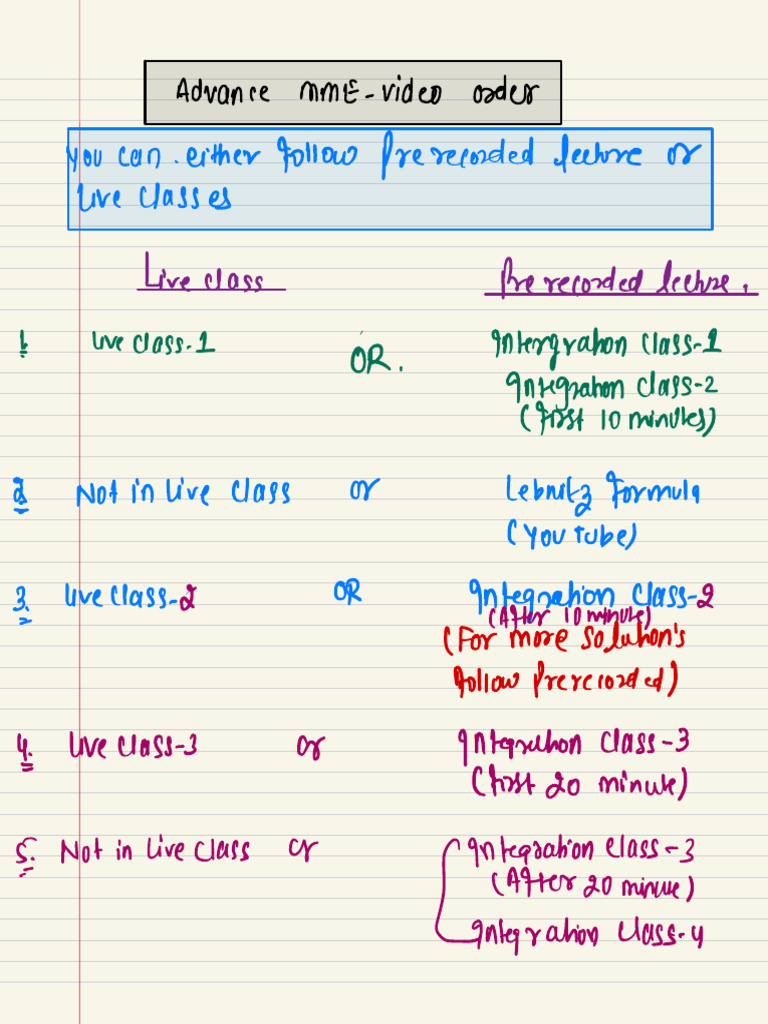 Advance MME-video order
You can either follow Pre recorded lecture or
Live classes
Live class Pre recorded lecture.
1. Live class-1 OR. Intergration class-1
Integration class-2
(first 10 minutes)
2. Not in Live class or Lebnitz Formula
(YouTube)
3. Live class-2 OR Integration class-2
(After 10 minute)
(For more solution's
follow Prerecorded)
4. Live class-3 or Integration class-3
(first 20 minute)
5. Not in Live class or Integration class-3
(After 20 minute)
Integration class-4